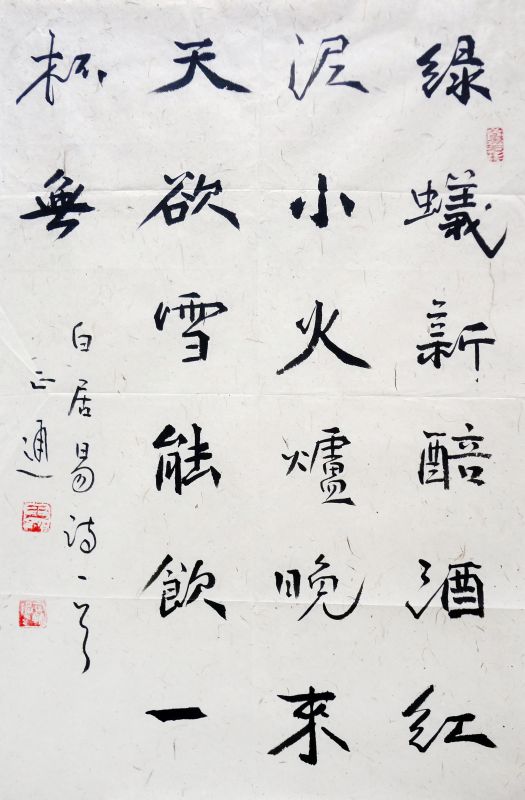 綠蟻新醅酒紅
泥小火爐晚來
天欲雪能飲一
杯無
白居易诗一首
正通